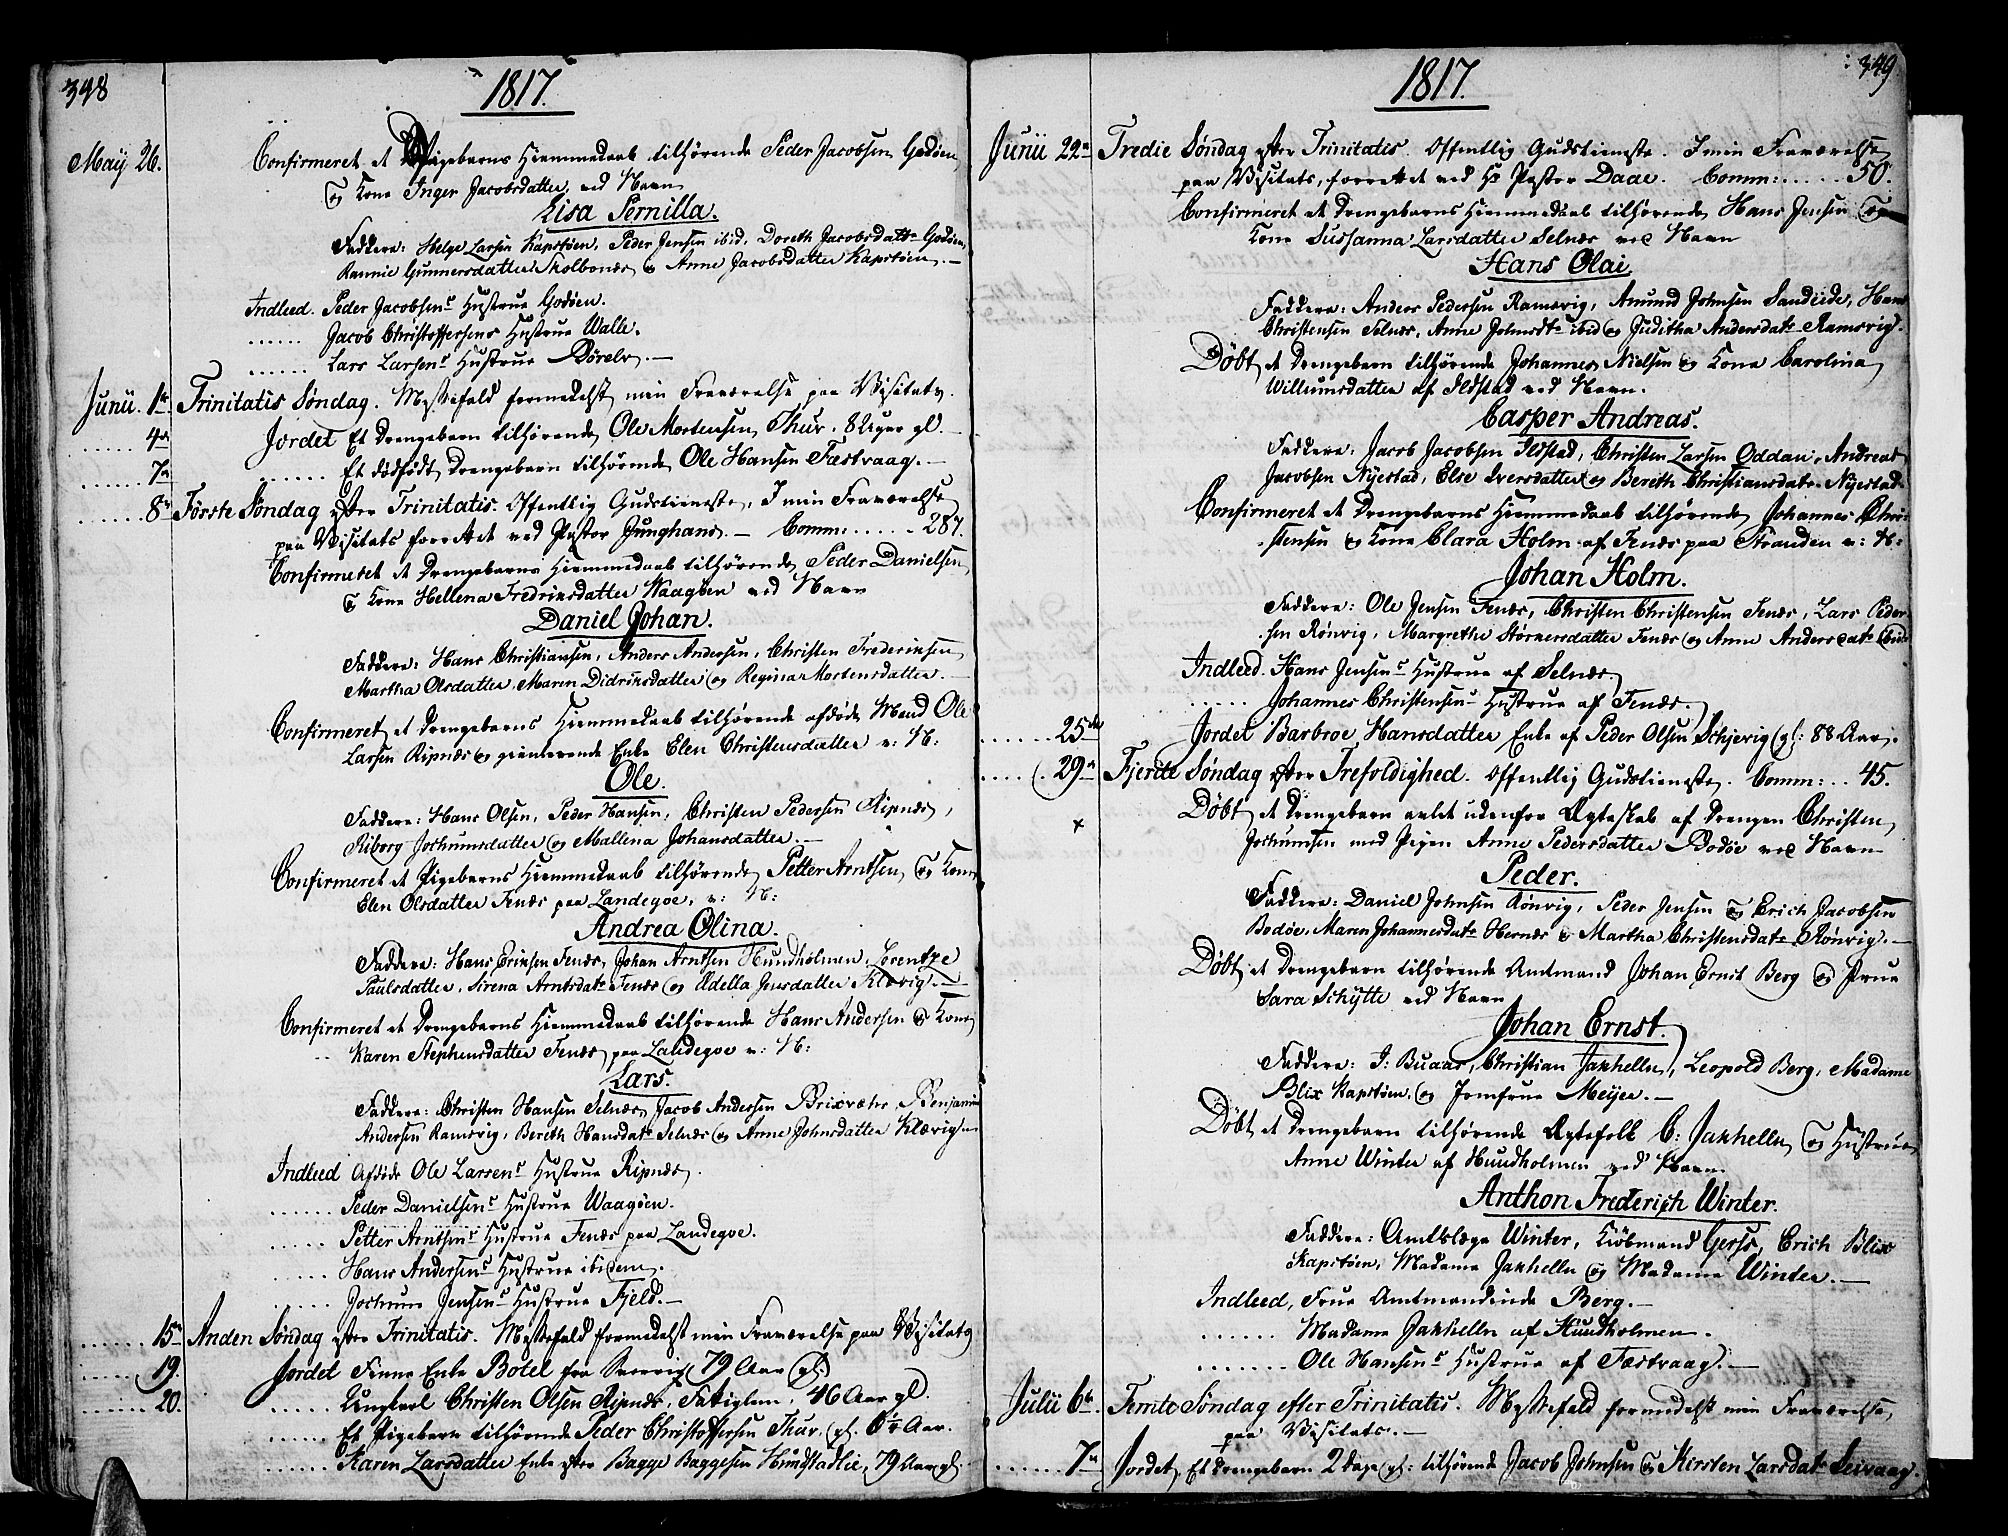 348
1817.
Maij 26. Confirmeret et Pigebarns Hiemmedaab tilhørende Peder Jacobsen Godøen
og Kone Inger Jacobsdatter, ved Navn
Lisa Pernilla.
Faddere: Helge Larsen Kapstøen, Peder Jensen ibid, Doreth Jacobsdattr Godøen,
Rannie Gunnersdatter Skolbones og Anne Jacobsdatter Kapstøen.—
Indleed. Peder Jacobsens Hustrue Godøen.
...... Jacob Christoffersens Hustrue Walle.
...... Lars Larsens Hustrue Børelv.—
Junii. 1te Trinitatis Søndag. Messefald formedelst min Fraværelse paa Visitats.
...... 4de Jordet Et Drengebarn tilhørende Ole Mortensen Thur. 8 Uger gl.
...... 7de ...... Et dødfødt Drengebarn tilhørende Ole Hansen Fæstvaag.—
...... 8de Første Søndag efter Trinitatis. Offentlig Gudstieneste, I min Fraværelse
paa Visitats forrettet ved Pastor Junghans.— Comm: ..... 287.
Confirmeret et Drengebarns Hiemmedaab tilhørende Peder Danielsen
og Kone Hellena Fredriksdatter Waagøen ved Navn
Daniel Johan.
Faddere: Hans Christiansen, Anders Andersen, Christen Frederiksen,
Martha Olsdatter, Maren Didriksdatter og Regina Mortensdatter.—
Confirmeret et Drengebarns Hiemmedaab tilhørende afdøde Mand Ole
Larsen Ripnæs og Enke Elen Christensdatter v: N:
Ole.
Faddere: Hans Olsen, Peder Hansen, Christen Pedersen Ripnæs,
Riborg Jochumsdatter og Mallena Johansdatter.—
Confirmeret et Pigebarns Hiemmedaab tilhørende Petter Arntsen og Kone
Elen Olsdatter Fenæs paa Landegoe, v: N:
Andrea Olina.
Faddere: Hans Eriksen Fenæs, Johan Arntsen Hundholmen, Lorentze
Paulsdatter, Sirena Arntsdatr Fenæs og Adella Jensdatter Klævig.—
Confirmeret et Drengebarns Hiemmedaab tilhørende Hans Andersen og Kone
Karen Stephensdatter Fenæs paa Landegoe v: N:
Lars.
Faddere: Christen Hansen Selnæs, Jacob Andersen Brixvær, Benjamin
Andersen Ramsvig, Bereth Hansdatr Selnæs og Anne Johnsdatter Klævig—
Indleed Afdøde Ole Larsens Hustrue Ripnæs.
...... Peder Danielsens Hustrue Waagøen.
...... Petter Arntsens Hustrue Fenæs paa Landegoe.
...... Hans Andersens Hustrue ibidem.
...... Jochum Jensens Hustrue Fjeld.—
...... 15de Anden Søndag efter Trinitatis. Messefald formedelst min Fraværelse paa Visitats
...... 19. Jordet Finne Enke Botel fra 79 Aar gl.
...... 20. ...... Ungkarl Christen Olsen Ripnæs, Fattiglem, 46 Aar gl.
...... Et Pigebarn tilhørende Peder Christoffersen Thur, gl. 6½ Aar.
...... Karen Larsdatter Enke efter Bagge Baggesen Hundstadlie, 79 Aar gl.
349
1817.
Junii 22de Tredie Søndag efter Trinitatis. Offentlig Gudstieneste. I min Fraværelse
paa Visitats, forrettet ved Hr Pastor Daae. Comm: ...... 50.
Confirmeret et Drengebarns Hiemmedaab tilhørende Hans Jensen og
Kone Sussanna Larsdatter Selnæs ved Navn
Hans Olai.
Faddere: Anders Pedersen Ramsvig, Amund Johnsen Sandeide, Hans
Christensen Selnæs, Anne Johnsdtr ibid og Juditha Andersdatr Ramsvig.
Døbt et Drengebarn tilhørende Johannes Nielsen og Kone Carolina
Willumsdatter af Ildstad ved Navn.
Casper Andreas.
Faddere: Jacob Jacobsen Ildstad, Christen Larsen Oddan, Andreas
Jacobsen Nyestad, Else Iversdatter og Bereth Christiansdatr Nyestad.
Confirmeret et Drengebarns Hiemmedaab tilhørende Johannes Chri-
stensen og Kone Clara Holm af Fenæs paa Stranden v: N:
Johan Holm.
Faddere: Ole Jensen Fenæs, Christen Christensen Fenæs, Lars Peder-
sen Rønvig, Margrethe Størkersdatter Fenæs og Anne Andersdatr ibid
Indleed. Hans Jensens Hustrue af Selnæs.
...... Johannes Christensens Hustrue af Fenæs.
...... 25de Jordet Barbroe Hansdatter Enke af Peder Olsen Schjevig gl: 88 Aar.
...... 29de Fjerde Søndag efter Trefoldighed. Offentlig Gudstieneste. Comm: .. 45.
× Døbt et Drengebarn avlet udenfor Ægteskab af Drengen Christen
Jochumsen med Pigen Anne Pedersdatter Bodøe ved Navn
Peder.
Faddere: Daniel Johnsen Rønvig, Peder Jensen og Erich Jacobsen
Bodøe, Maren Johannesdatr Hernæs og Martha Christensdatr Rønvig.—
Døbt et Drengebarn tilhørende Amtmand Johan Ernst Berg og Frue
Sara Schytte ved Navn
Johan Ernst.
Faddere: J: Buaas, Christian Jakhelln, Leopold Berg, Madame
Blix Kapstøen, og Jomfrue Meijer.—
Døbt et Drengebarn tilhørende Ægtefolk C: Jakhelln og Hustrue
Anne Winter af Hundholmen ved Navn
Anthon Frederich Winter.
Faddere: Amtslæge Winter, Kiøbmand Gerss, Erich Blix
Kapstøen, Madame Jakhelln og Madame Winter.—
Indleed, Frue Amtmandinde Berg.—
...... Madame Jakhelln af Hundholmen.
...... Ole Hansens Hustrue af Fæstvaag.—
Julii 6te Femte Søndag efter Trinitatis. Messefald formedelst min Fraværelse
paa Visitats.—
...... 7de Jordet, Et Drengebarn 2 Dage gl: tilhørende Jacob Johnsen og Kirsten Larsdatr Seivaag.